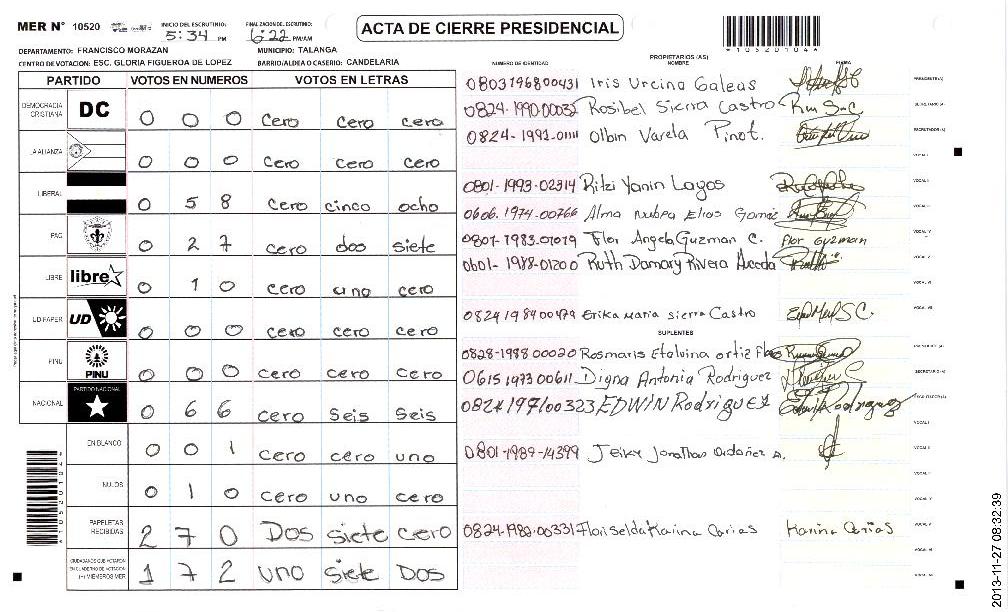 MER N° 10520
INICIO DEL ESCRUTINIO: 5:34 PM
FINALIZACION DEL ESCRUTINIO: 6:22 PM/AM
ACTA DE CIERRE PRESIDENCIAL
*10520104*
DEPARTAMENTO: FRANCISCO MORAZAN MUNICIPIO: TALANGA
CENTRO DE VOTACION: ESC. GLORIA FIGUEROA DE LOPEZ BARRIO/ALDEA O CASERIO: CANDELARIA
PROPIETARIOS (AS)
NUMERO DE IDENTIDAD NOMBRE FIRMA
PARTIDO VOTOS EN NUMEROS VOTOS EN LETRAS
DEMOCRACIA CRISTIANA DC 0 0 0 cero cero cero
LA ALIANZA 0 0 0 cero cero cero
LIBERAL 0 5 8 cero cinco ocho
PAC 0 2 7 cero dos siete
LIBRE libre 0 1 0 cero uno cero
UD FAPER UD 0 0 0 cero cero cero
PINU PINU 0 0 0 cero cero cero
NACIONAL PARTIDO NACIONAL 0 6 6 cero Seis Seis
EN BLANCO 0 0 1 cero cero uno
NULOS 0 1 0 cero uno cero
PAPELETAS RECIBIDAS 2 7 0 Dos siete cero
CIUDADANOS QUE VOTARON EN CUADERNO DE VOTACION (+) MIEMBROS MER 1 7 2 uno siete Dos
0803196800431 Iris Urcina Galeas PRESIDENTE(A)
0824-1990-00032 Rosibel Sierra Castro SECRETARIO (A)
0824-1991-01111 Olbin Varela Pinot. ESCRUTADOR (A)
VOCAL I
0801-1993-02314 Ritzi Yanin Lagos VOCAL II
0606.1974-00766 Alma
0801-1983-01019 Flor Angela Guzman C. Flor Guzman VOCAL IV
0601-1988-01200 Ruth Damary Rivera Aceda VOCAL V
VOCAL VI
0824198400479 Erika Maria Sierra Castro VOCAL VII
SUPLENTES
0828-1988 00020 Rosmaris Etelvina ortiz
0615 1973 00611 Digna Antonia Rodriguez SECRETARIO (A)
0824197100323 EDWIN Rodriguez
0801-1989-14399 Jeiky Jonathan Ordoñez A.
0824-1982-00331 Floriselda Karina Carias Karina Carias
2013-11-27 08:32:39